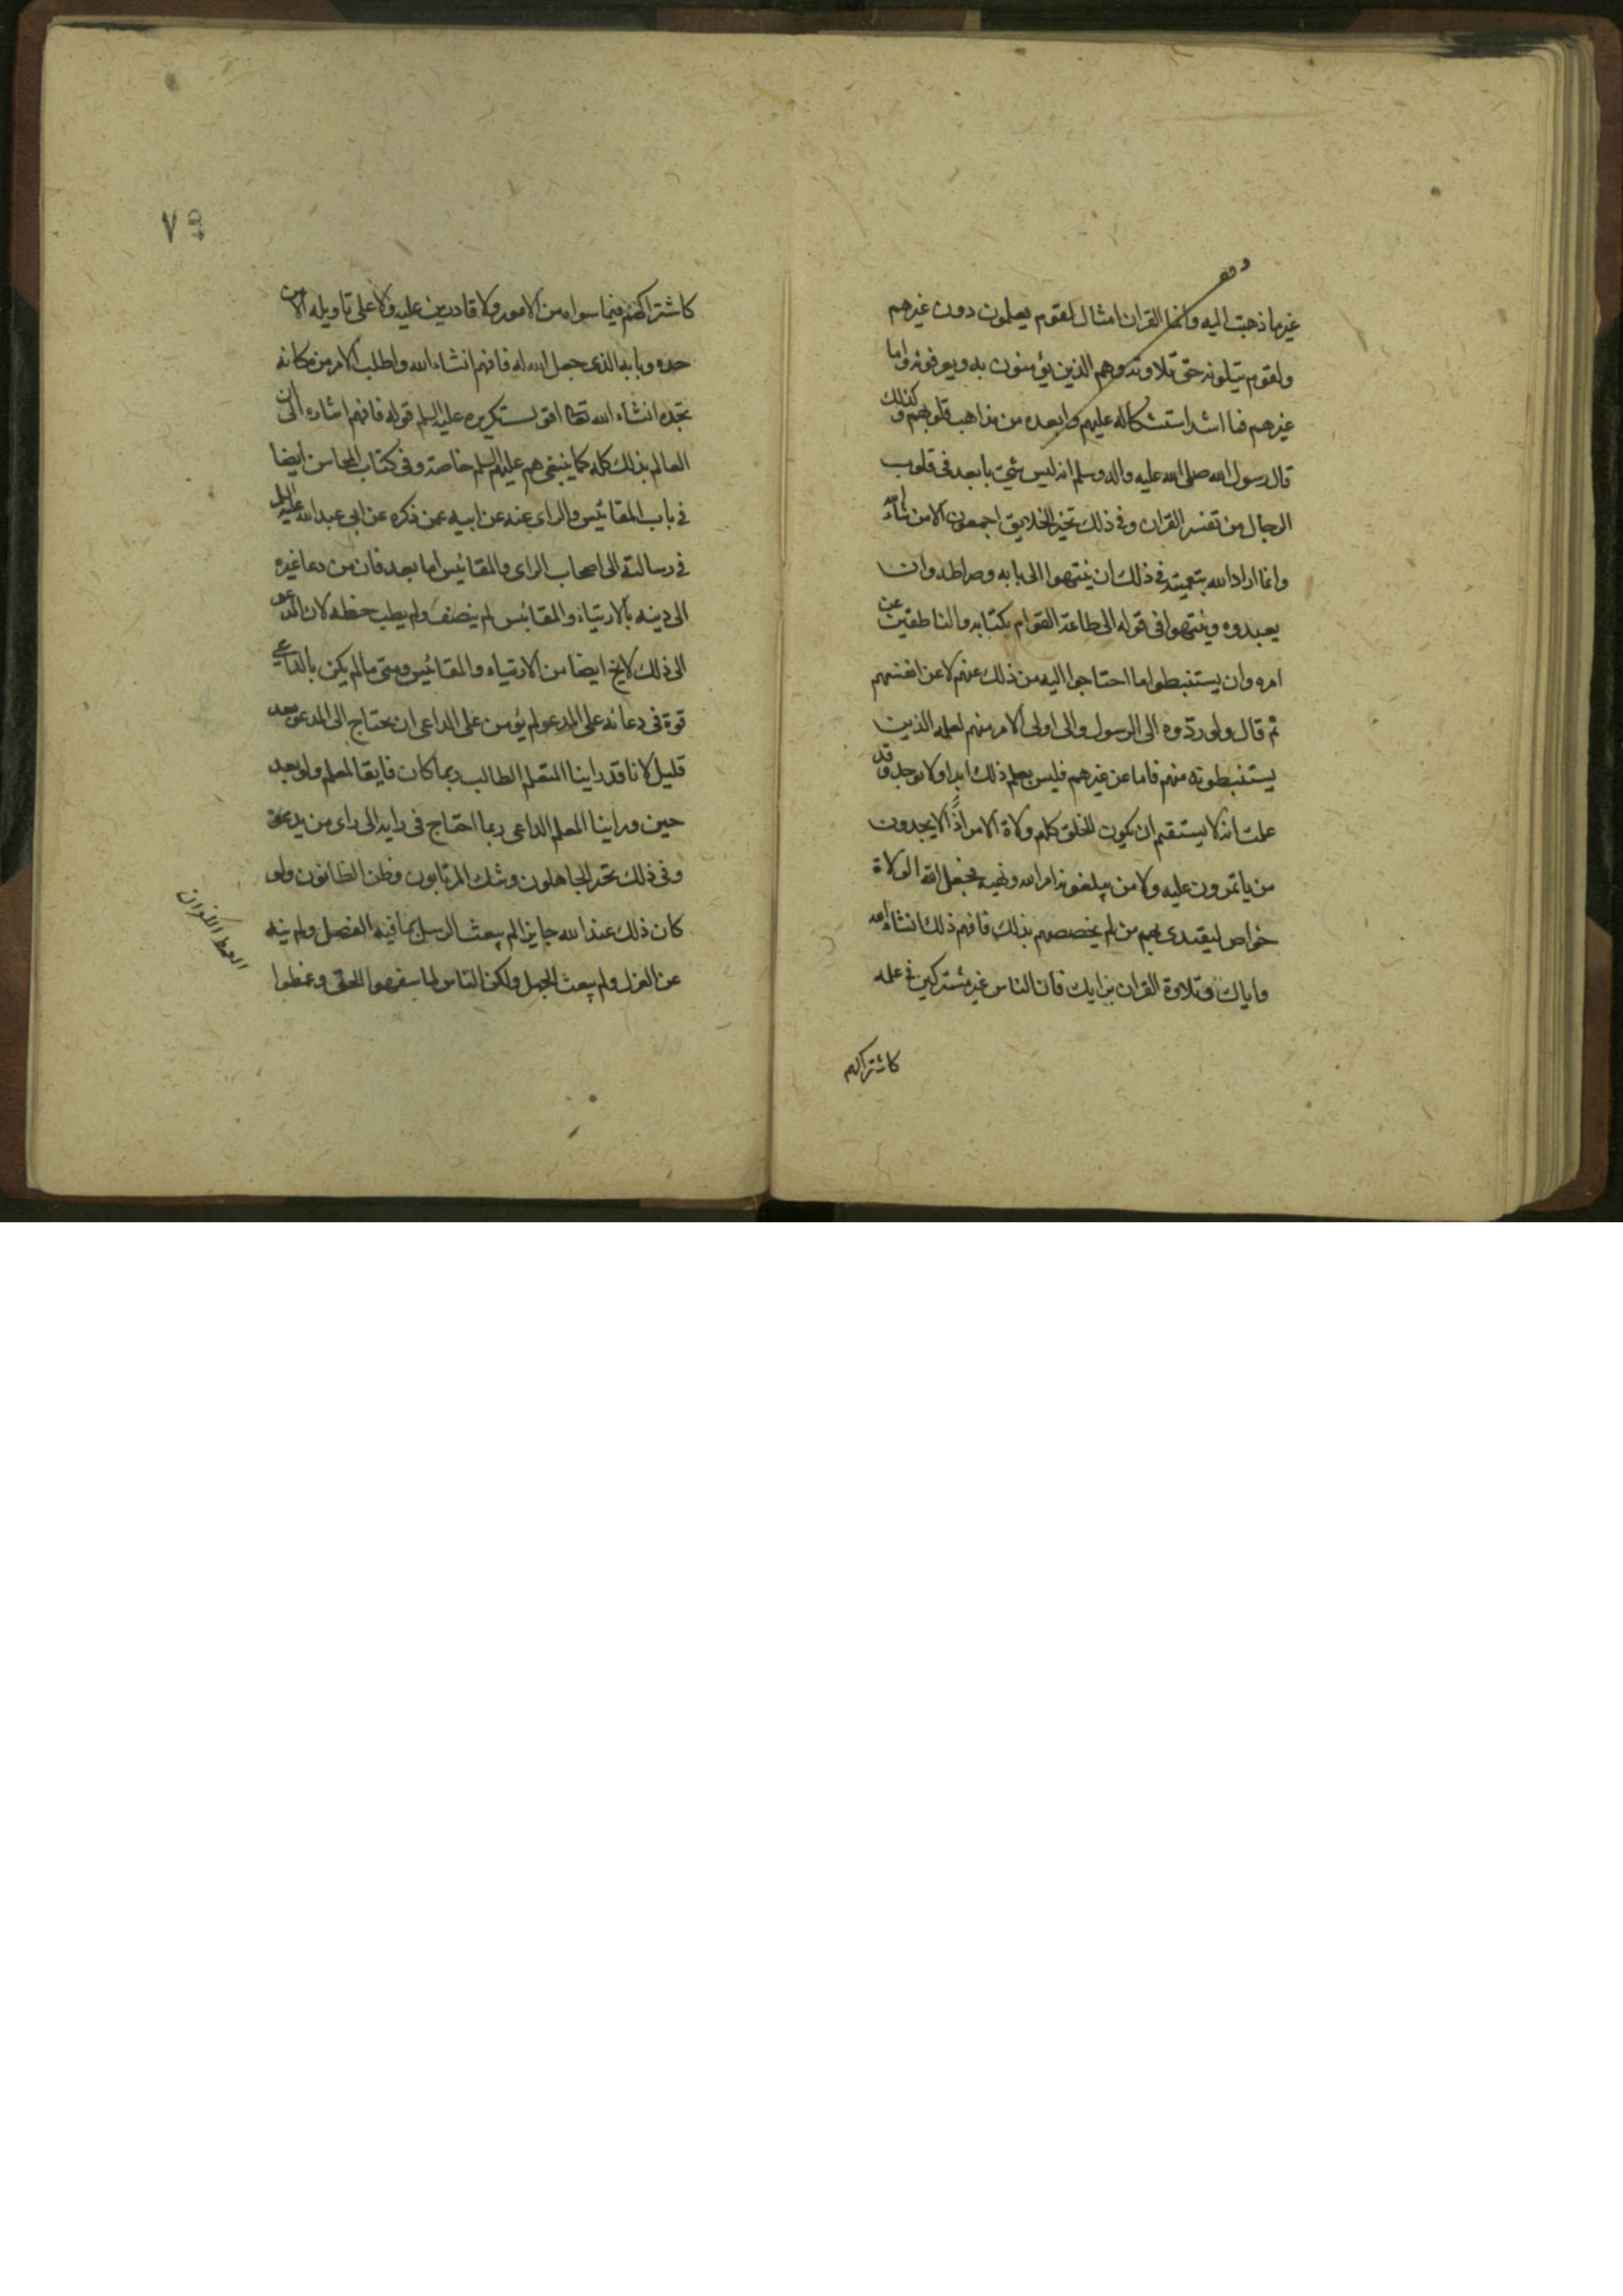 غير ما ذهبت اليه وانما القران امثال لقوم يعلمون دون غيرهم
ولقوم يتلونه حق تلاوته وهم الذين يؤمنون به ويعرفونه واما
غيرهم فما اشد استشكاله عليهم وابعده من مذاهب قلوبهم وكذلك
قال رسول الله صلى الله عليه واله وسلم انه ليس شئ بابعد فى قلوب
الرجال من تفسير القران وفى ذلك تحير الخلايق اجمعون الا من شاء الله
وانما اراد الله بتعميته فى ذلك ان ينتهوا الى بابه وصراطه وان
يعبدوه وينتهوا فى قوله الى طاعة القوام بكتابه والناطقين عن
امره وان يستنبطوا ما احتاجوا اليه من ذلك عنهم لا عن انفسهم
ثم قال ولو ردّوه الى الرسول والى اولى الامر منهم لعلمه الذين
يستنبطونه منهم فاما عن غيرهم فليس يعلم ذلك ابدا ولا يوجد وقد
علمت انه لا يستقيم ان يكون الخلق كلهم ولاة الامر اذًا لا يجدون
من ياتمرون عليه ولا من يبلغونه امر الله ونهيه فجعل الله الولاة
خواص ليقتدى بهم من لم يخصصهم بذلك فافهم ذلك انشاء الله
واياك وتلاوة القران برايك فان الناس غير مشتركين فى علمه
كاشتراكهم
كاشتراكهم فيما سواه من الامور ولا قادرين عليه ولا على تاويله الا من
حده وبابه الذى جعل الله له فافهم انشاء الله واطلب الامر من مكانه
تجده انشاء الله تعالى اقول تكريره عليه السلم قوله فافهم اشاره الى ان
العالم بذلك كله كما ينبغى هم عليهم السلم خاصة وفى كتاب المحاسن ايضا
فى باب المقائيس والراى عنه عن ابيه عمن ذكره عن ابى عبد الله عليه السلم
فى رسالته الى اصحاب الراى والمقائيس اما بعد فان من دعا غيره
الى دينه بالارتياء والمقائس لم ينصف ولم يصب حظه لان المدعو
الى ذلك لا يخ ايضا من الارتياء والمقائيس ومتى ما لم يكن بالداعى
قوة فى دعائه على المدعو لم يؤمن على الداعى ان يحتاج الى المدعو بعد
قليل لانا قد راينا المتعلم الطالب ربما كان فايقا لمعلم ولو بعد
حين وراينا المعلم الداعى ربما احتاج فى رايه الى راى من يدعو
وفى ذلك تحير الجاهلون وشك المرتابون وظن الظانون ولو
كان ذلك عند الله جايزا لم يبعث الرسل بما فيه الفصل ولم ينه
عن الهزل ولم يعب الجهل ولكن الناس لما سفهوا الحق وغمطوا